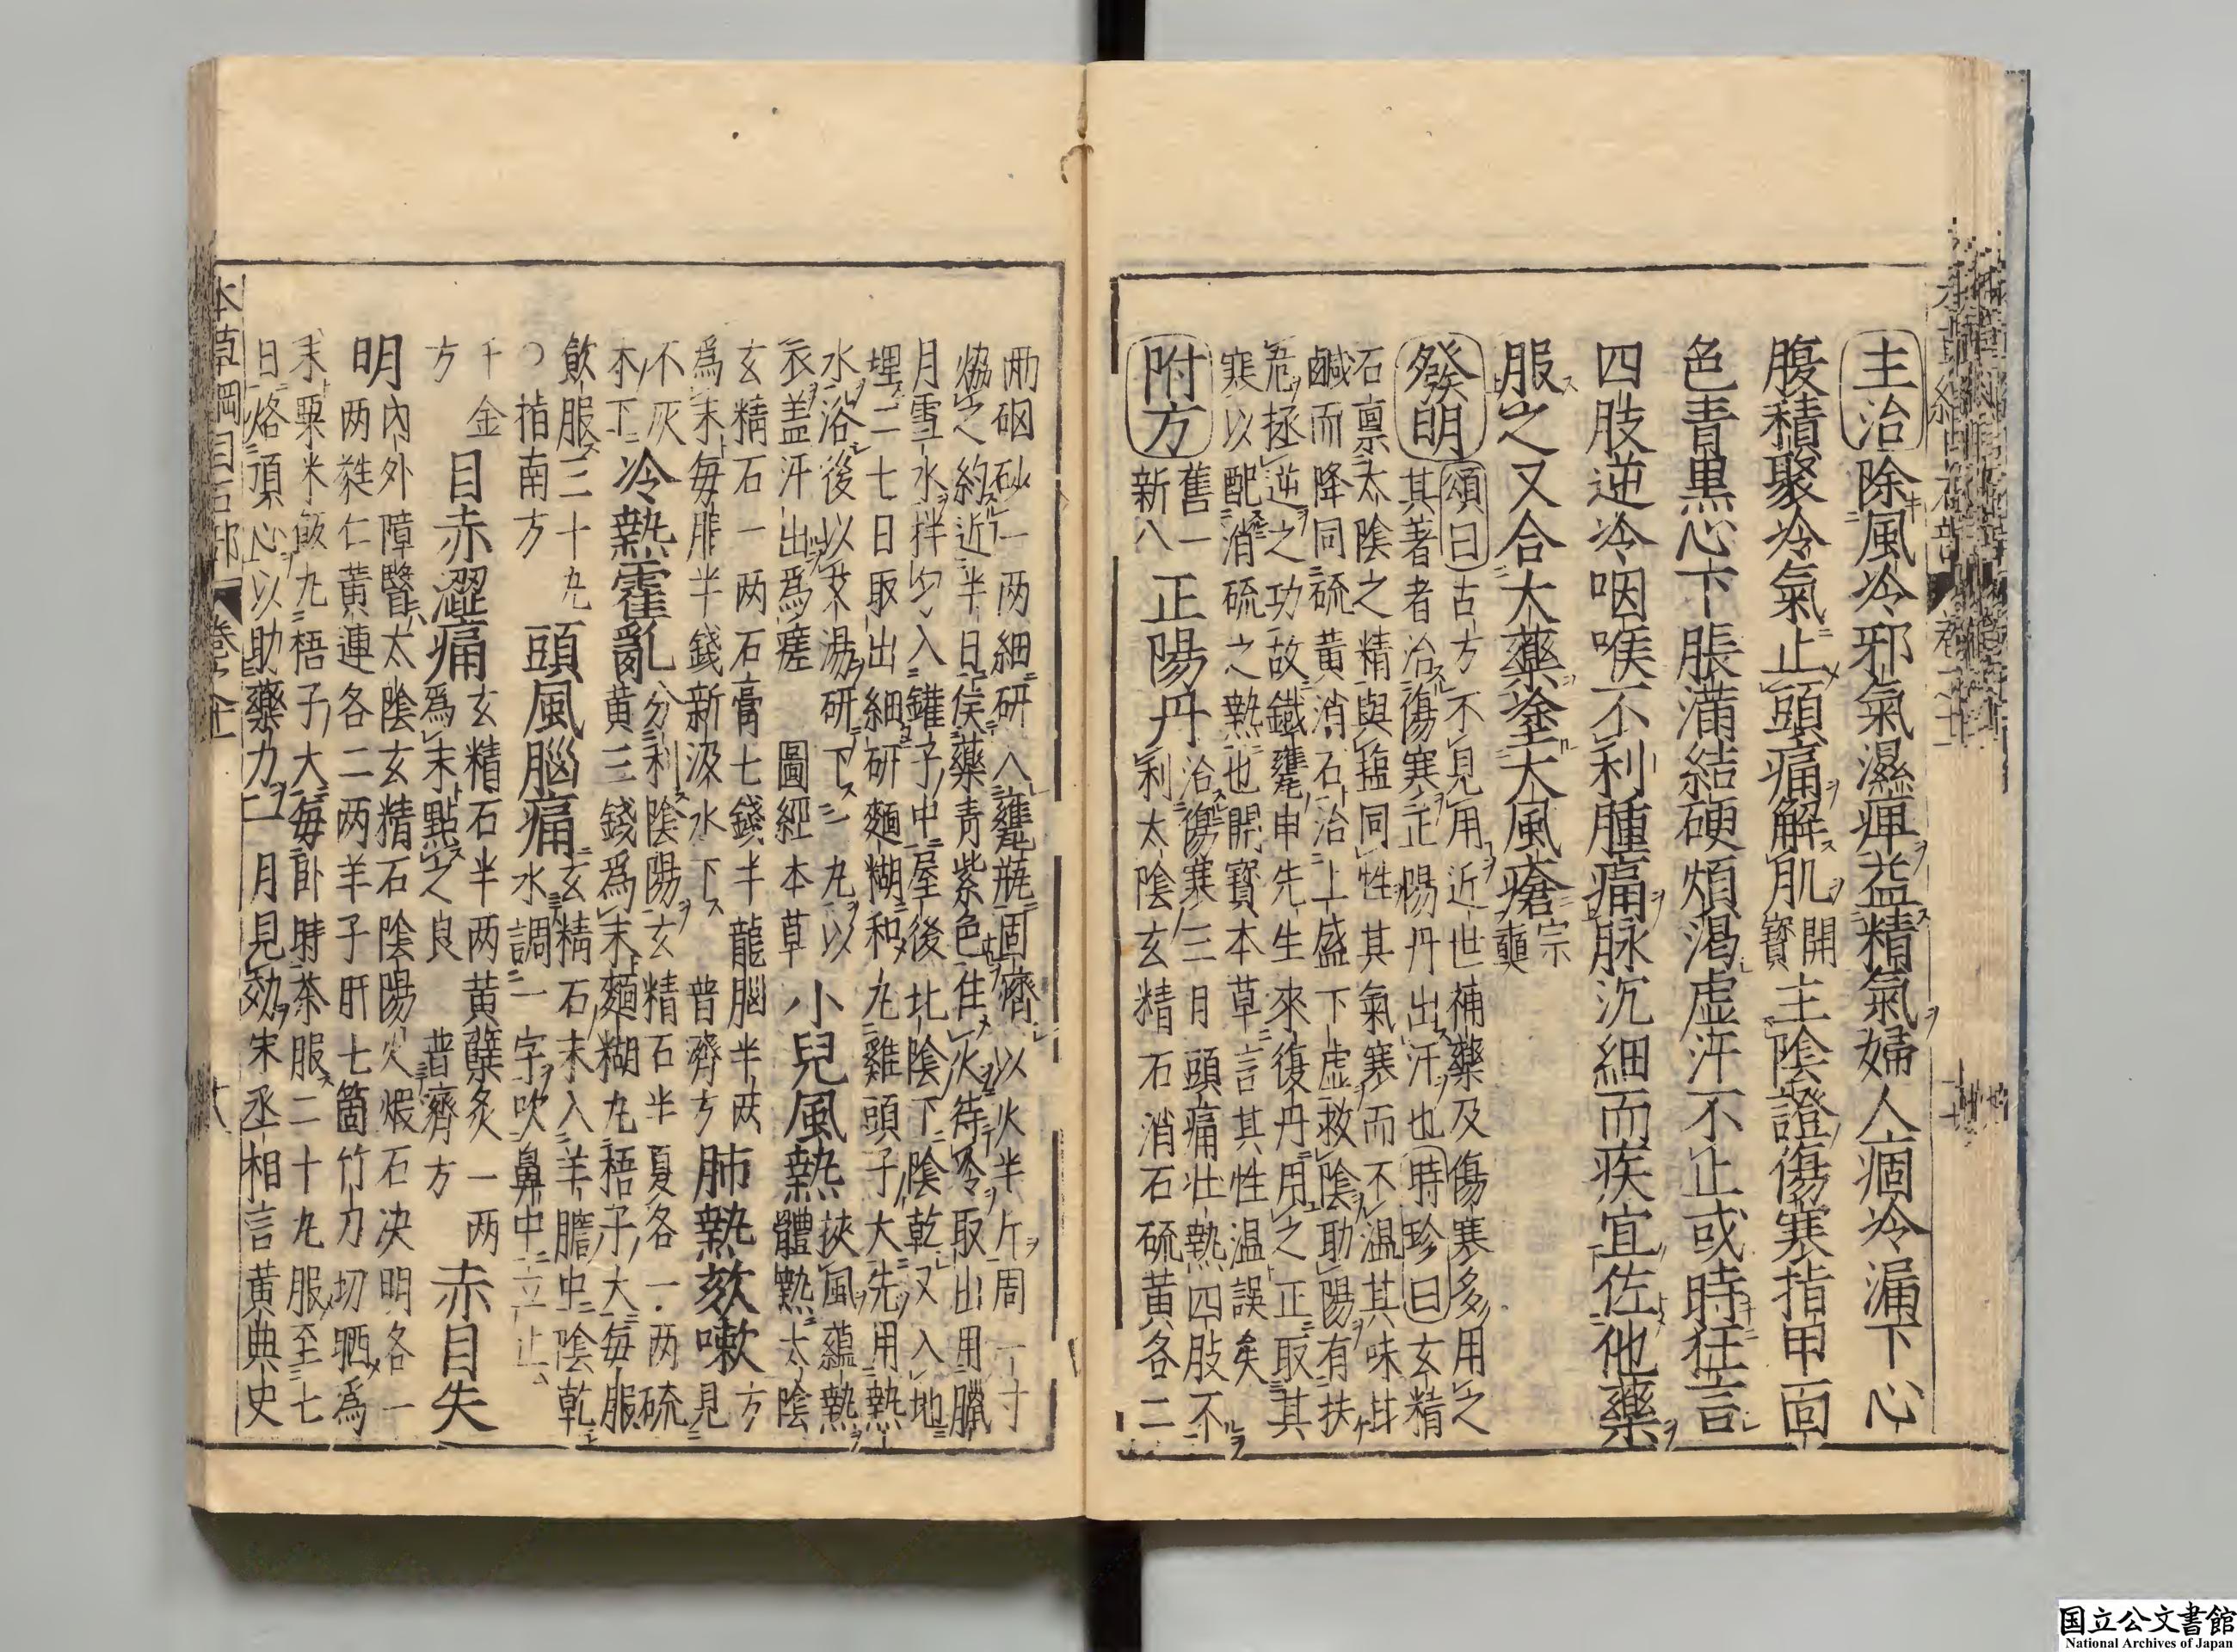 主治除風冷邪氣濕痺益精氣婦人痼冷漏下心
腹積聚冷氣止頭痛解肌開寶主陰證傷寒指甲面
色青黒心下脹滿結硬煩渇虚汗不止或時狂言
四肢逆冷咽喉不利腫痛脉沉細而疾宜佐他藥
服之又合大藥塗大風瘡宗奭
發明頌曰古方不見用近世補藥及傷寒多用之
其著者治傷寒正陽丹出汗也時珍曰玄精
石稟太陰之精與鹽同性其氣寒而不温其味甘
鹹而降同硫黄消石治上盛下虚救陰助陽有扶
危拯逆之功故鐵甕申先生來復丹用之正取其
寒以配消硫之熱也開寶本草言其性温誤矣
附方舊一
新八正陽丹治傷寒三月頭痛壮熱四肢不
利太陰玄精石消石硫黄各二
兩硇砂一两細研入甕瓶固濟以火半斤周一寸
熁之約近半日侯藥青紫色住火待冷取出用臘
月雪水拌匀入鑵子中屋後北陰下陰乾又入地
埋二七日取出細研麵糊和丸雞頭子大先用熱
水浴後以艾湯研下一丸以
衣盖汗出爲瘥 圖經本草 小兒風熱挾風蘊熱
體熱太陰
玄精石一两石膏七錢半龍腦半两
爲末毎服半錢新汲水下 普濟方 肺熱欬嗽方見
不灰
木下冷熱霍亂分利陰陽玄精石半夏各一两硫
黄三錢爲末麵糊丸梧子大毎服
飲服三十丸
指南方 頭風腦痛玄精石末入羊膽中陰乾
水調一字吹鼻中立止
千金
方 目赤澀痛玄精石半两黄蘗炙一两
爲末點之良 普濟方 赤目失
明内外障瞖太陰玄精石陰陽火煅石决明各一
两蕤仁黄連各二两羊子肝七箇竹刀切晒爲
末粟米飯丸梧子大毎卧時茶服二十九服至七
日烙頂心以助藥力一月見効宋丞相言黄典史
本草綱目石部
国立公文書館
National Archives of Japan